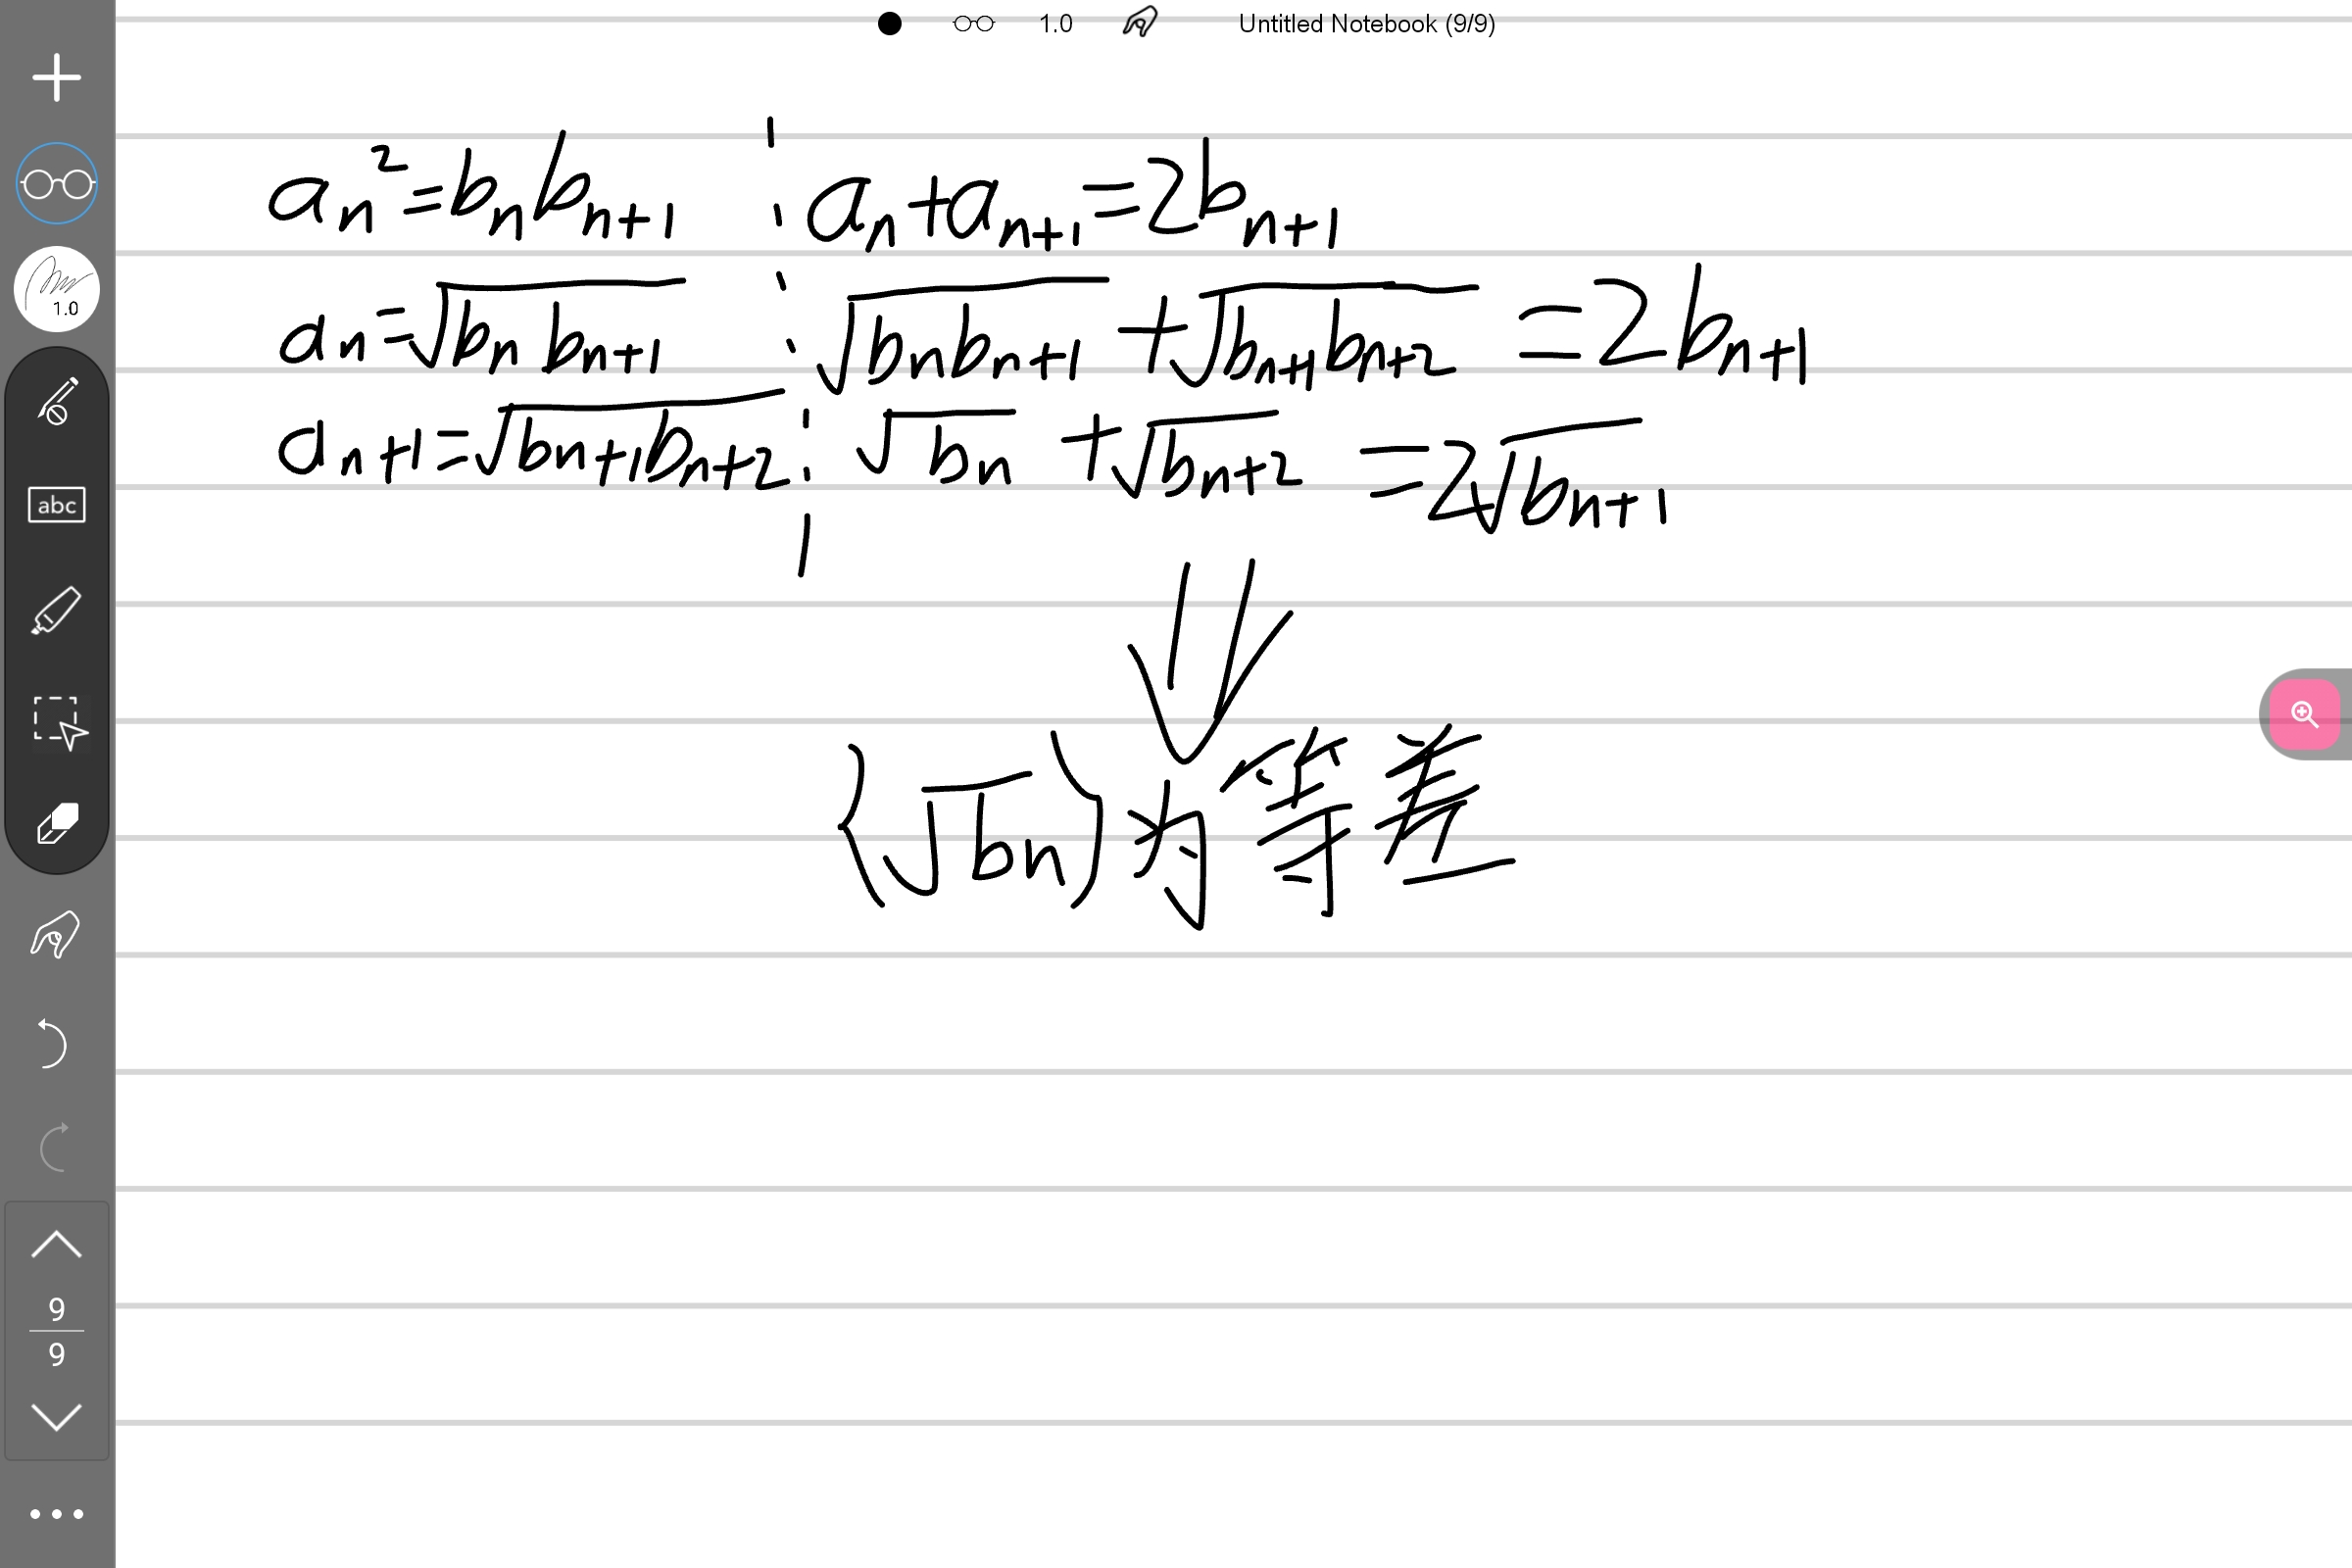 1.0 Untitled Notebook (9/9)
1.0
abc
aₙ²=bₙbₙ₊₁ aₙ+aₙ₊₁=2bₙ₊₁
aₙ=√(bₙbₙ₊₁) √(bₙbₙ₊₁)+√(bₙ₊₁bₙ₊₂)=2bₙ₊₁
aₙ₊₁=√(bₙ₊₁bₙ₊₂) √bₙ+√bₙ₊₂=2√bₙ₊₁
⇓
{√bₙ}为等差
9
9